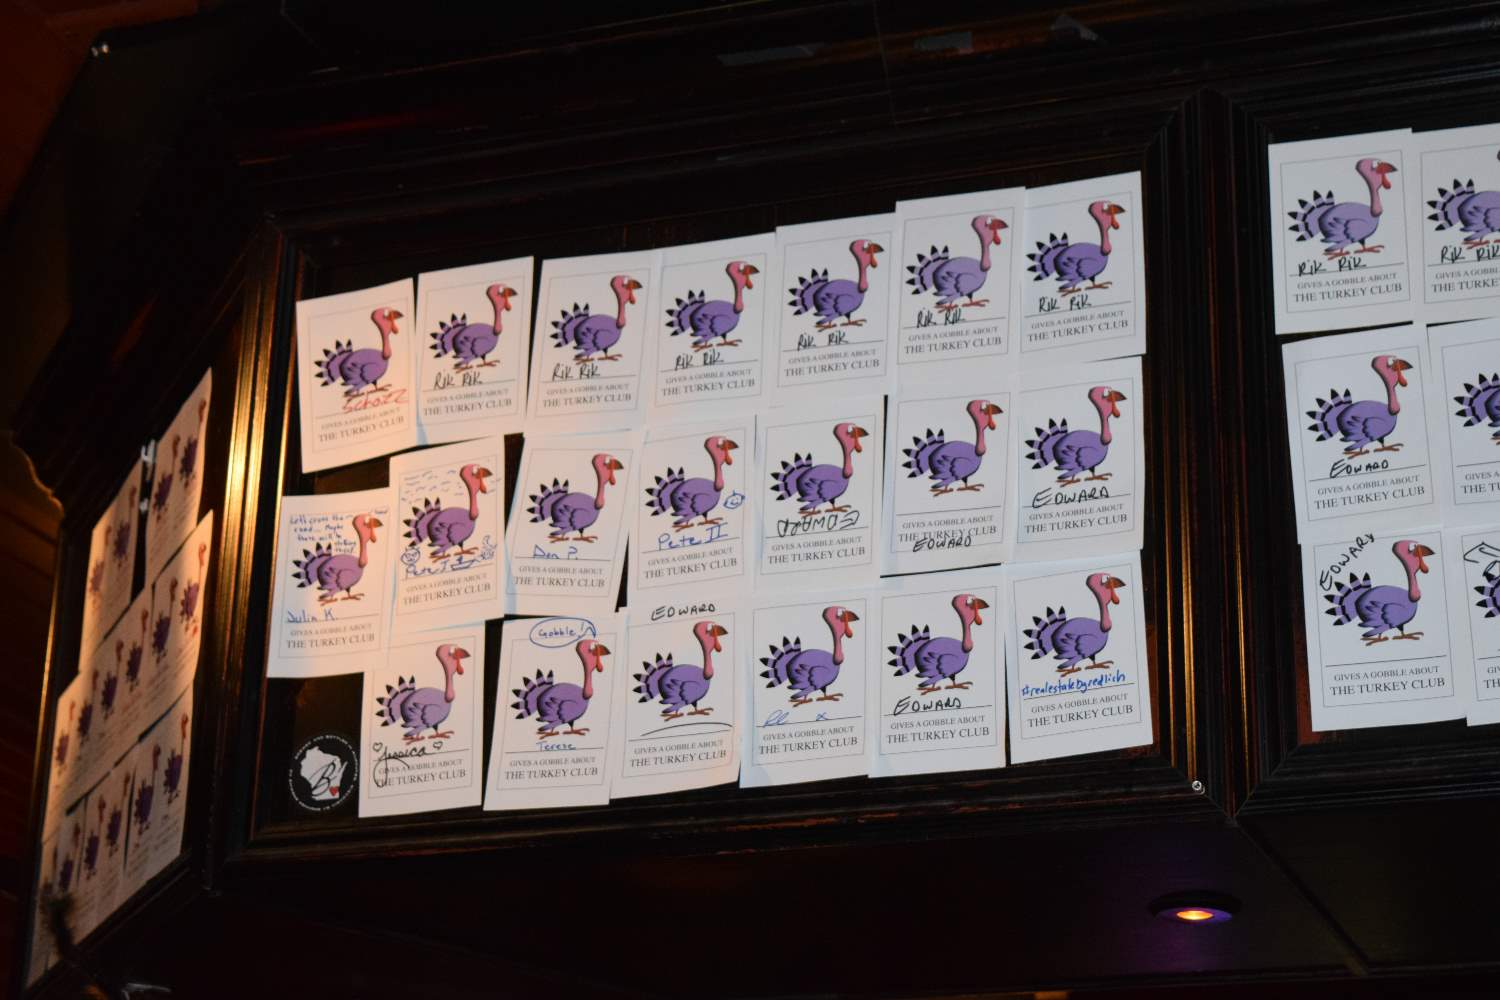 Schatz
GIVES A GOBBLE ABOUT
THE TURKEY CLUB
Rik Rik
GIVES A GOBBLE ABOUT
THE TURKEY CLUB
Rik Rik
GIVES A GOBBLE ABOUT
THE TURKEY CLUB
Rik Rik
GIVES A GOBBLE ABOUT
THE TURKEY CLUB
Rik Rik
GIVES A GOBBLE ABOUT
THE TURKEY CLUB
Rik Rik
GIVES A GOBBLE ABOUT
THE TURKEY CLUB
Rik Rik
GIVES A GOBBLE ABOUT
THE TURKEY CLUB
Rik Rik
GIVES A GOBBLE ABOUT
THE TURKEY CLUB
Rik Rik
GIVES A GOBBLE
THE TURKEY
Let's cross the
road... Maybe
there will be
Julia K.
GIVES A GOBBLE ABOUT
THE TURKEY CLUB
Pete I
GIVES A GOBBLE ABOUT
THE TURKEY CLUB
Dan P.
GIVES A GOBBLE ABOUT
THE TURKEY CLUB
Pete II
GIVES A GOBBLE ABOUT
THE TURKEY CLUB
EDWARD
GIVES A GOBBLE ABOUT
THE TURKEY CLUB
GIVES A GOBBLE ABOUT
THE TURKEY CLUB
EDWARD
EDWARD
GIVES A GOBBLE ABOUT
THE TURKEY CLUB
EDWARD
GIVES A GOBBLE ABOUT
THE TURKEY CLUB
Jessica
GIVES A GOBBLE ABOUT
THE TURKEY CLUB
Gobble!
Terese
GIVES A GOBBLE ABOUT
THE TURKEY CLUB
EDWARD
GIVES A GOBBLE ABOUT
THE TURKEY CLUB
GIVES A GOBBLE ABOUT
THE TURKEY CLUB
EDWARD
GIVES A GOBBLE ABOUT
THE TURKEY CLUB
#realestatebyredlich
GIVES A GOBBLE ABOUT
THE TURKEY CLUB
EDWARY
GIVES A GOBBLE ABOUT
THE TURKEY CLUB